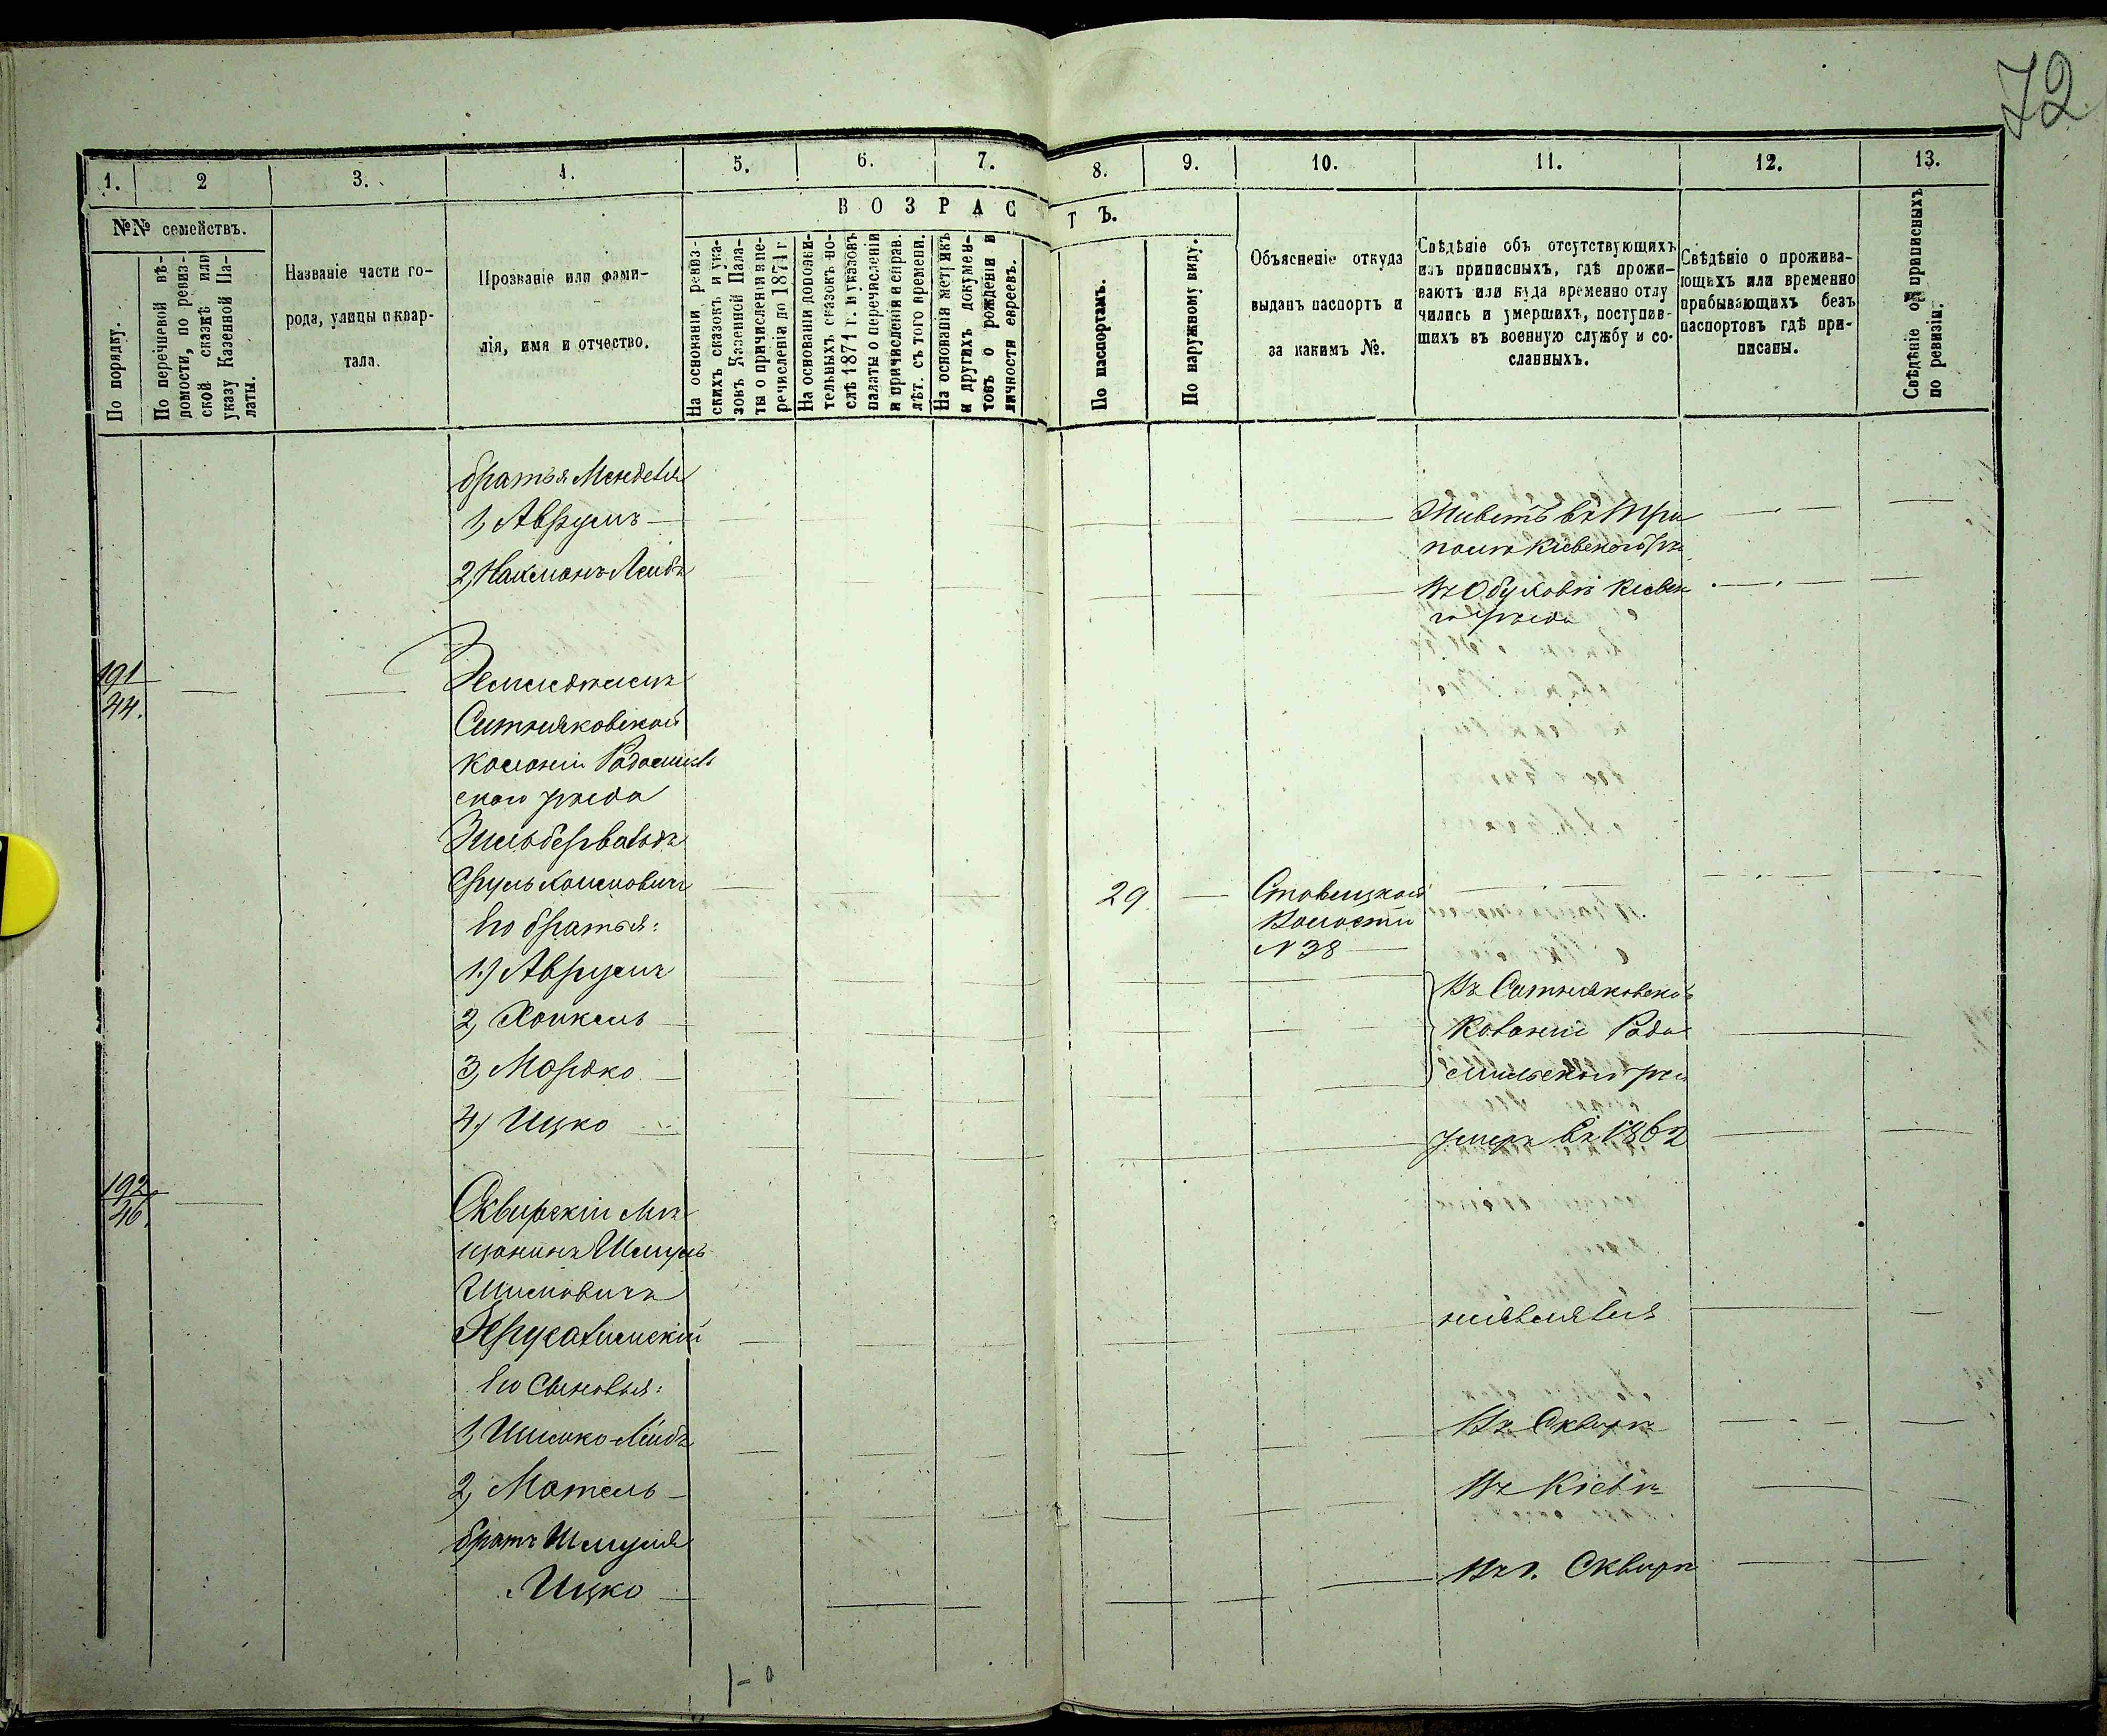 72
1. 2 3. 4. 5. 6. 7. 8. 9. 10. 11. 12. 13.
№№ семействъ.
По порядку.
По переписевой вѣ-
домости, по ревиз-
ской сказкѣ или
указу Казенной Па-
латы.
Названіе части го-
рода, улицы и квар-
тала.
Прозваніе или фами-
лія, имя и отчество.
ВОЗРАСТЪ.
На основаніи ревиз-
скихъ сказокъ и ука-
зовъ Казенной Пала-
ты о причисленіи и пе-
речисленіи до 1874 г
На основаніи дополни-
тельныхъ сказокъ по-
слѣ 1874 г. и указовъ
палаты о перечисленіи
и причисленія и исправ.
лѣт. съ того времени.
На основаніи метрикъ
и другихъ докумен-
товъ о рожденіи и
личности евреевъ.
По паспортамъ.
По наружному виду.
Объясненіе откуда
выданъ паспортъ и
за какимъ №.
Свѣдѣніе объ отсутствующихъ
изъ приписныхъ, гдѣ прожи-
ваютъ или куда временно отлу
чились и умершихъ, поступив-
шихъ въ военную службу и со-
сланныхъ.
Свѣдѣніе о прожива-
ющихъ или временно
прибывающихъ безъ
паспортовъ гдѣ при-
писаны.
Свѣдѣніе о приписныхъ
по ревизіи.
братья Менделя
1, Аврумъ
Живетъ въ Три
полѣ Кіевскаго у.
2, Нахманъ Лейбъ
Въ Обуховѣ Кіевск
го уѣзда
191
44.
Земледѣлецъ
Ситняковской
колоніи Радомысль
скаго уѣзда
Зильберваldъ
Сруль Хаимовичъ
29
Ставищкой
Волости
N 38
Его братья:
1.) Аврумъ
2, Хаикель
3, Мордко
Въ Ситняковской
Колоніи Радо
мысльскаго уѣз
4.) Ицко
умеръ въ 1862
192
46.
Сквирскій мѣ
щанинъ Шмуль
Шимовичъ
Ярусалимскій
неявлялся
Его Сыновья:
1, Шимко-Лейбъ
Въ Сквирѣ
2, Мотель
Въ Кіевѣ
братъ Шмуля
Ицко
Въ г. Сквирѣ